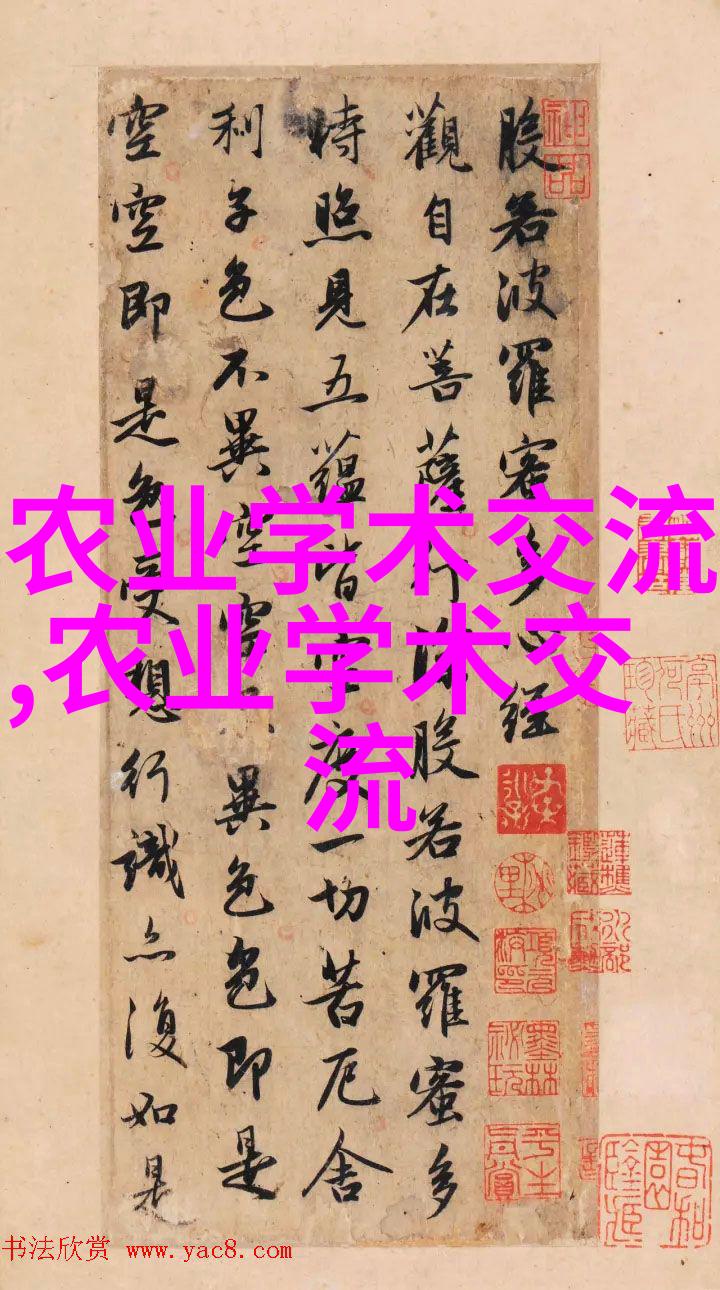 般若波羅密多心經
觀自在菩薩行深般若波羅蜜多
時照見五蘊皆空度一切苦厄舍
利子色不異空空不異色色即是
空空即是色受想行識亦復如是
农业学术交流
,农业学术交
流
神品
墨林祕玩
书法欣赏 www.yac8.com